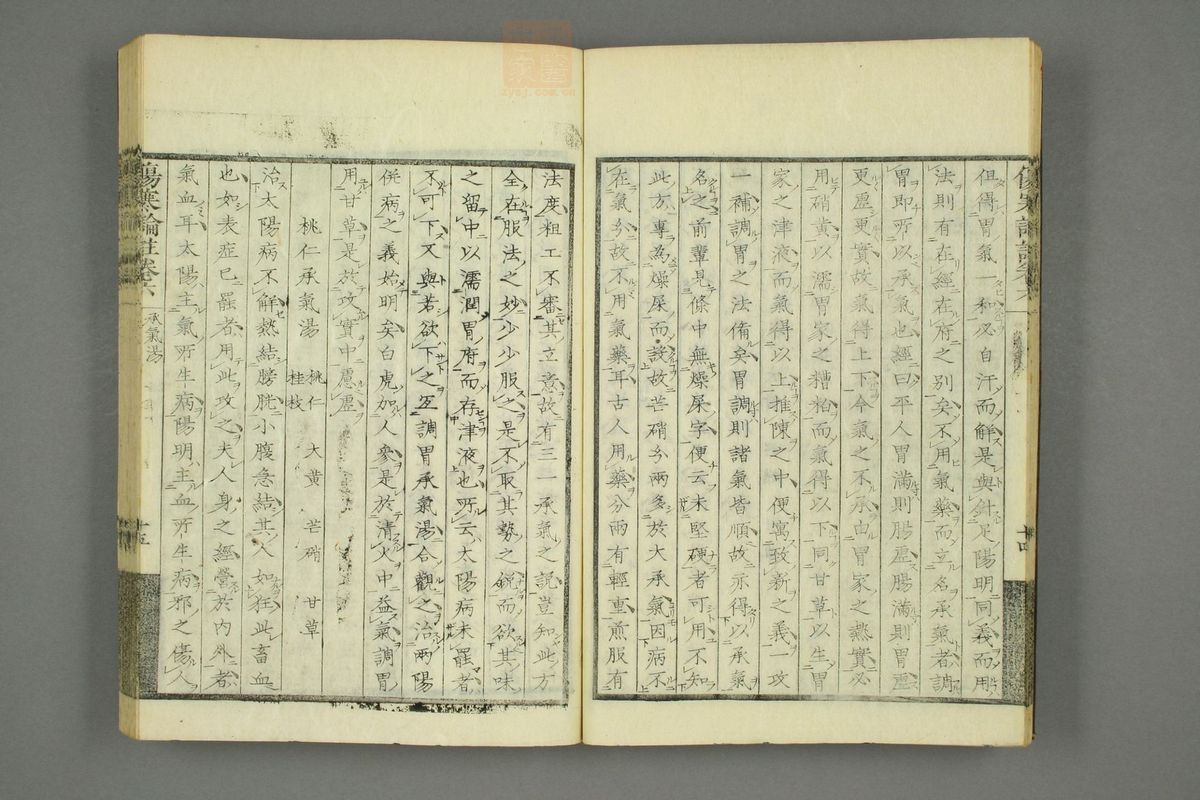 傷寒論註卷六
十四
但得胃氣一和必自汗而解是與針足陽明同義而用
法則有在經在府之別矣不用氣藥而立名承氣者調
胃即所以承氣也經曰平人胃滿則腸虛腸滿則胃虛
更虛更實故氣得上下今氣之不承由胃家之熱實必
用硝黃以濡胃家之糟粕而氣得以下同甘草以生胃
家之津液而氣得以上推陳之中便寓致新之義一攻
一補調胃之法備矣胃調則諸氣皆順故亦得以承氣
名之前輩見條中無燥屎字便云未堅硬者可用不知
此方專為燥屎而設故芒硝分兩多於大承氣因病不
在氣分故不用氣藥耳古人用藥分兩有輕重煎服有
法度粗工不審其立意故有三一承氣之說豈知此方
全在服法之妙少少服之是不取其勢之銳而欲其味
之留中以濡潤胃府而存津液也所云太陽病未罷者
不可下又與若欲下之宜調胃承氣湯合觀之治兩陽
併病之義始明矣白虎加人參是於清火中益氣調胃
用甘草是於攻實中慮虛
桃仁承氣湯 桃仁 大黃 芒硝 甘草
桂枝
治太陽病不解熱結膀胱小腹急結其人如狂此畜血
也如表症已罷者用此攻之夫人身之經營於內外者
氣血耳太陽主氣所生病陽明主血所生病邪之傷人
傷寒論註卷六 承氣湯
十五